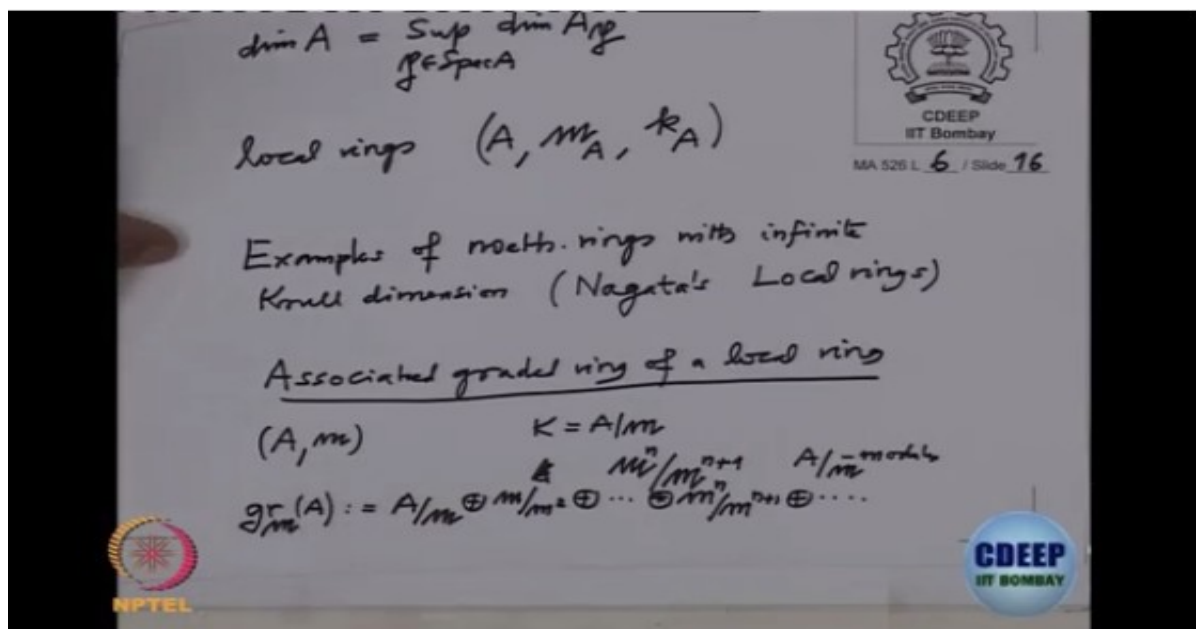 dim A = Sup dim A𝔭
𝔭∈Spec A
CDEEP
IIT Bombay
MA 526 L 6 / Slide 16
local rings (A, 𝔪_A, k_A)
Examples of noeth. rings with infinite
Krull dimension (Nagata's Local rings)
Associated graded ring of a local ring
(A, 𝔪) K = A/𝔪
𝔪^n/𝔪^{n+1} A/𝔪-modules
gr_𝔪(A) := A/𝔪 ⊕ 𝔪/𝔪² ⊕ ··· ⊕ 𝔪^n/𝔪^{n+1} ⊕ ····
NPTEL
CDEEP
IIT BOMBAY